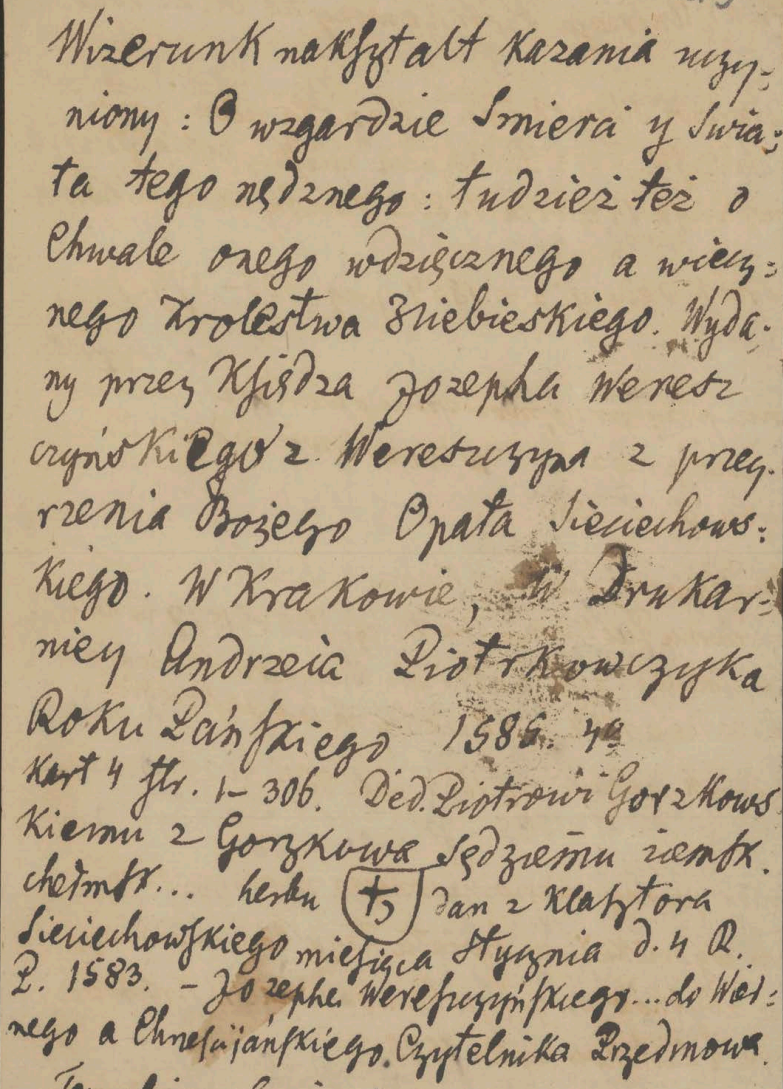 Wizerunk nakſztalt Kazania uczy:
niony: O wzgardzie Smierci y Swia:
ta tego nędznego: tudzież też o
Chwale onego wdzięcznego a wiecz:
nego Krolestwa Niebieskiego. Wyda:
ny przez Kſiędza Jozepha Weresz
czyńskiego z Wereszczyna z przey:
rzenia Bożego Opata Sieciechows:
kiego. W Krakowie, W Drukar:
niey Andrzeia Piotrkowczyka
Roku Pańſkiego 1585. 4º
Kart 4 ſtr. 1–306. Ded. Piotrowi Gorzkows
kiemu z Gorzkowa Sędziemu ziemſk.
chełmſk... herbu dan z Klaſztora
Sieciechowſkiego mieſiąca Stycznia d. 4 R.
P. 1583. – Jozepha Wereſzczyńſkiego... do Wier:
nego a Chrześcijańſkiego Czytelnika Przedmowa.